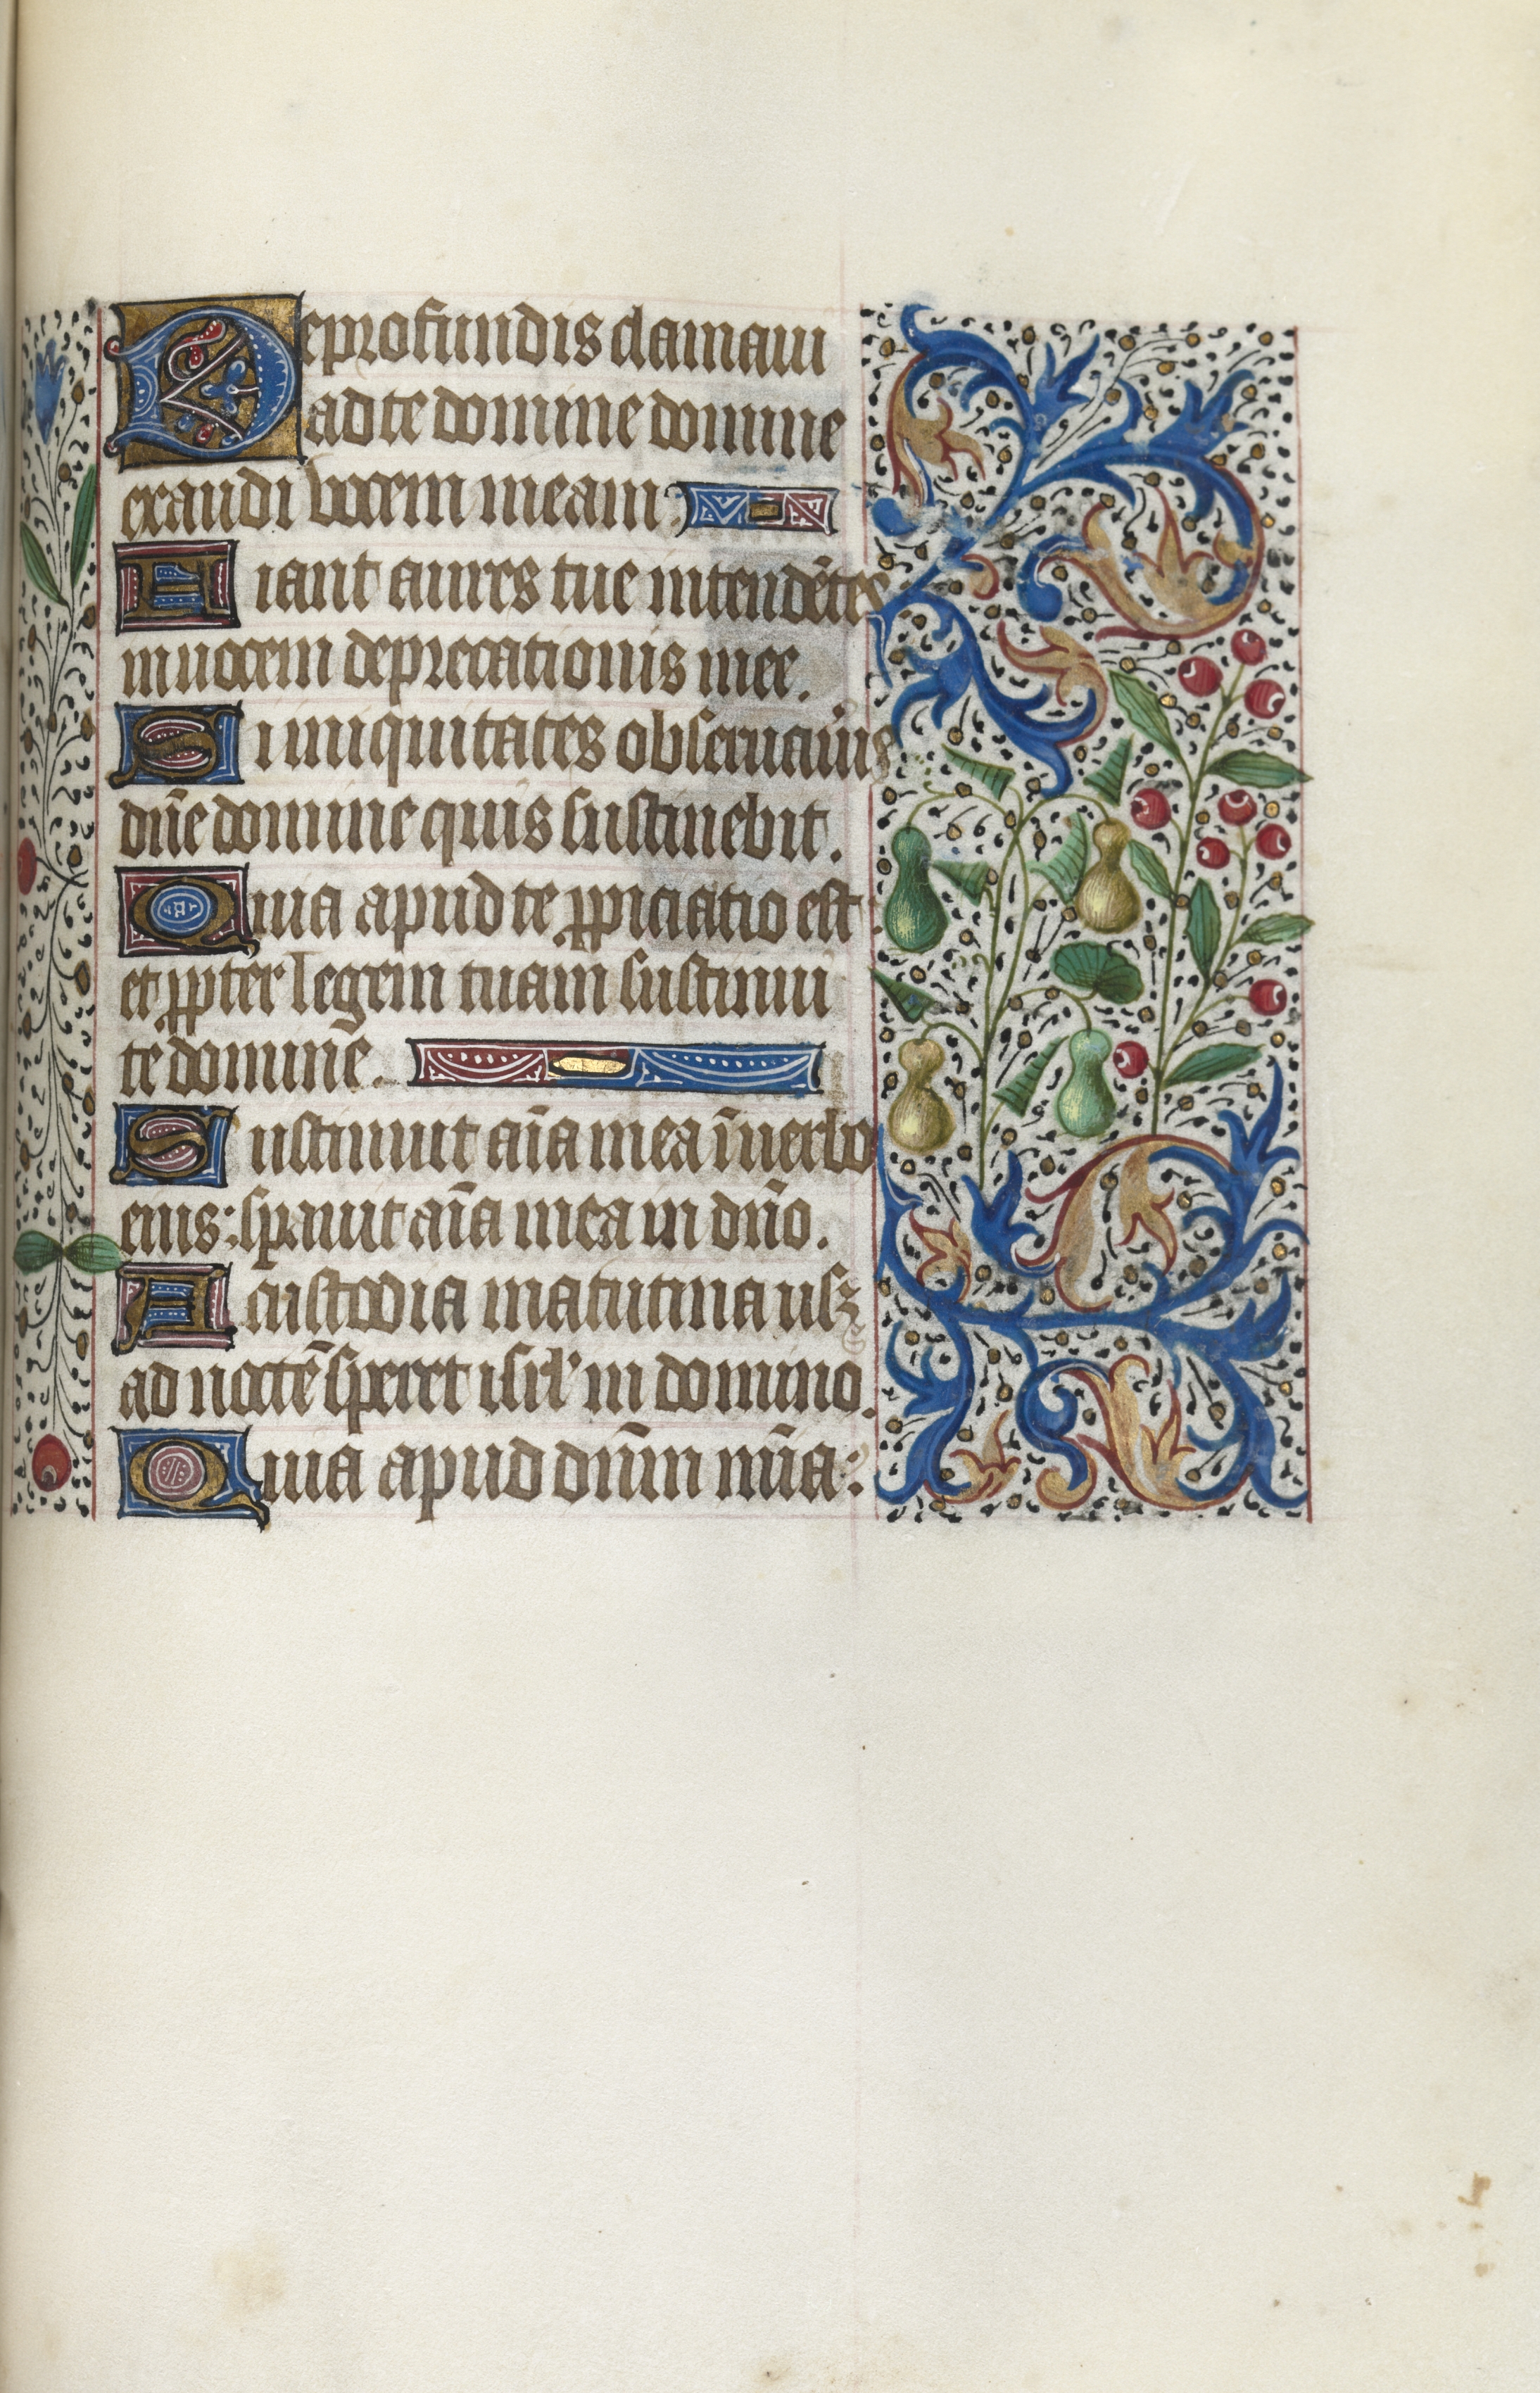 De profundis clamaui
ad te domine domine
exaudi vocem meam
Fiant aures tue intendẽtes
in uocem deprecationis mee.
Si iniquitates obseruaũis
dñe domine quis sustinebit.
Quia apud te ꝓpiciatio est
et ꝓpter legem tuam sustinui
te dominẽ.
Sustinuit aĩa mea ĩ uerbo
eius: sꝑauit aĩa mea in dño.
A custodia matutina usꝫ
ad noctẽ speret isrl' in domino.
Quia apud dñm mĩa: